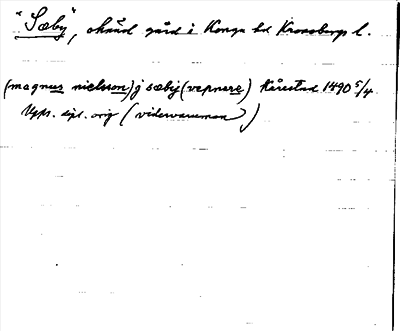 "Sæby", okänd gård i Konga hd Kronobergs l.
(magnus nielsson) j sæby (vepnere) Kårestad 1490 5/4
Upps. dipl. orig (vidervaruman)